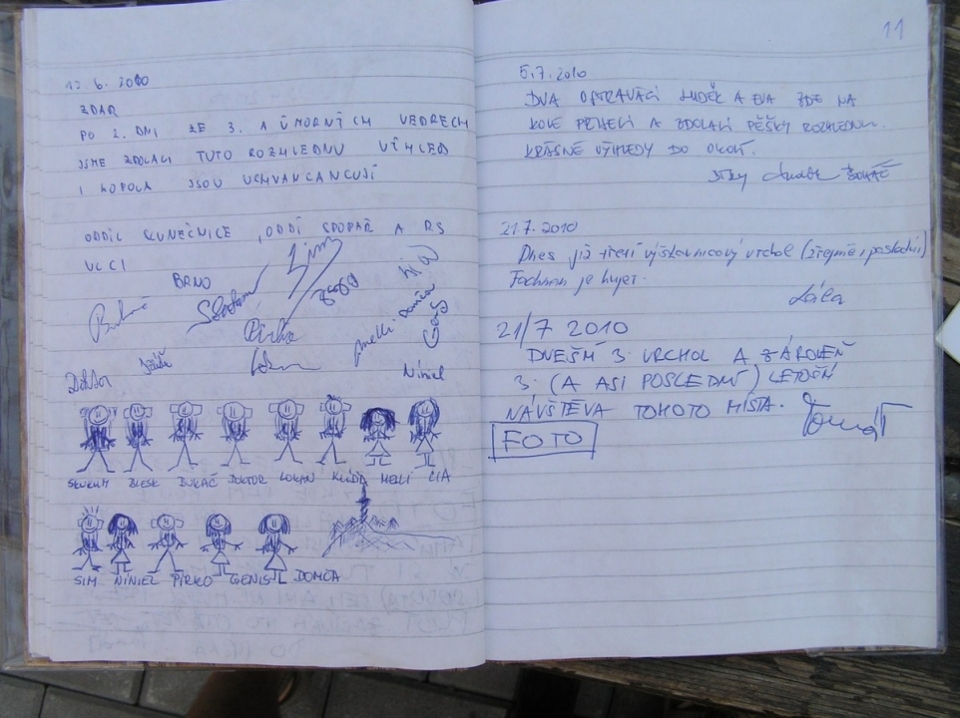 12. 6. 2010
ZDAR
PO 2. DNI ZE 3. A ÚMORNÝCH VEDRECH
JSME ZDOLALI TUTO ROZHLEDNU VÝHLED
I KOPOLA JSOU
ODDÍL SLUNEČNICE, ODDÍ A RS
VLCI
BRNO
Niniel
SKUKUM BLESK BUKAČ DOKTOR LOKAN MELI LIA
SIM NINIEL PÍRKO GENIS DOMČA
11
5.7.2010
DVA OSTRAVÁCI LUDĚK A EVA ZDE NA
KOLE PŘIJELI A ZDOLALI PĚŠKY ROZHLEDNU.
KRÁSNÉ VÝHLEDY DO OKOLÍ.
21.7. 2010
Dnes již třetí výšlavnicový vrchol (zřejmě i poslední)
Fachman je hujer.
Lála
21/7 2010
DNEŠNÍ 3. VRCHOL A ZÁROVEŇ
3. (A ASI POSLEDNÍ) LETOŠNÍ
NÁVŠTĚVA TOHOTO MÍSTA. Tomáš
FOTO